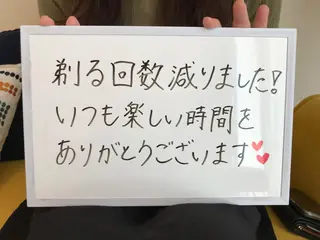 剃る回数減りました!
いつも楽しい時間を
ありがとうございます